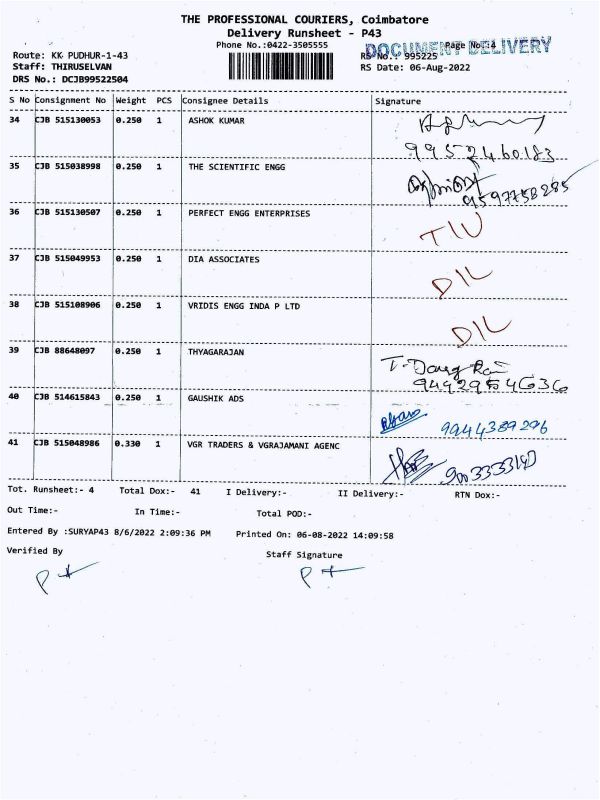 THE PROFESSIONAL COURIERS, Coimbatore
Delivery Runsheet - P43
Phone No.:0422-3505555
DOCUMENT DELIVERY
Page No.:4
Route: KK PUDHUR-1-43
RS No.: 995225
Staff: THIRUSELVAN
RS Date: 06-Aug-2022
DRS No.: DCJB99522504
S No Consignment No Weight PCS Consignee Details Signature
34 CJB 515130053 0.250 1 ASHOK KUMAR
9952460183
35 CJB 515038998 0.250 1 THE SCIENTIFIC ENGG
9597758285
36 CJB 515130507 0.250 1 PERFECT ENGG ENTERPRISES
37 CJB 515049953 0.250 1 DIA ASSOCIATES D/L
38 CJB 515108906 0.250 1 VRIDIS ENGG INDA P LTD D/L
39 CJB 88648097 0.250 1 THYAGARAJAN
9442954636
40 CJB 514615843 0.250 1 GAUSHIK ADS
9944389296
41 CJB 515048986 0.330 1 VGR TRADERS & VGRAJAMANI AGENC
Tot. Runsheet:- 4 Total Dox:- 41 I Delivery:- II Delivery:- RTN Dox:-
Out Time:- In Time:- Total POD:-
Entered By :SURYAP43 8/6/2022 2:09:36 PM Printed On: 06-08-2022 14:09:58
Verified By Staff Signature